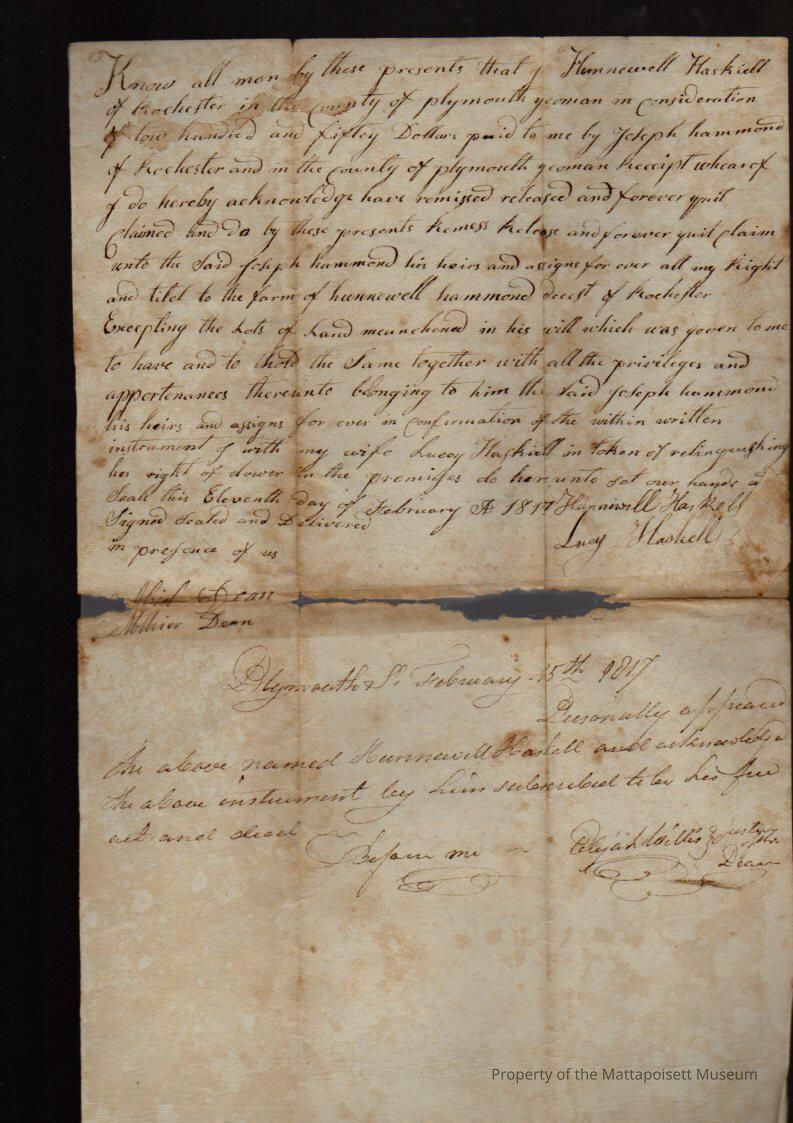 Know all men by these presents that j Hunnewell Haskiell
of Rochester in the County of plymouth yeoman in consideration
of tow hundred and fiftey Dollars paid to me by Joseph hammond
of Rochester and in the county of plymouth yeoman Receipt whearof
J do hereby acknowledge have remissed released and forever quit
Claimed and Do by these presents Remess Release and forever quit claim
unto the Said Joseph hammond his heirs and assigns for ever all my Right
and titel to the farm of hunnewell hammond decest of Rochester
Excepting the Lots of Land meanchened in his will which was goven to me
to have and to thold the Same together with all the privileges and
appertenances thereunto belonging to him the Said Joseph hammond
his heirs and assigns for ever in confirmation of the within written
instrument J with my wife Lucey Haskiell in token of relinquishing
her right of dower in the premises do hereunto set our hands a
Seall this Eleventh day of February A 1817 Hunniwill Haskell
Signed Sealed and Delivered
Lucy Haskell
in presence of us
Abiel Dean
Dean
Plymouth Ss February 15th 1817
Personally appeared
the above named Hunnewell Haskell and acknowledge
the above instrument by him subscribed to be his free
act and deed
Before me Elijah Willis Justice
Property of the Mattapoisett Museum